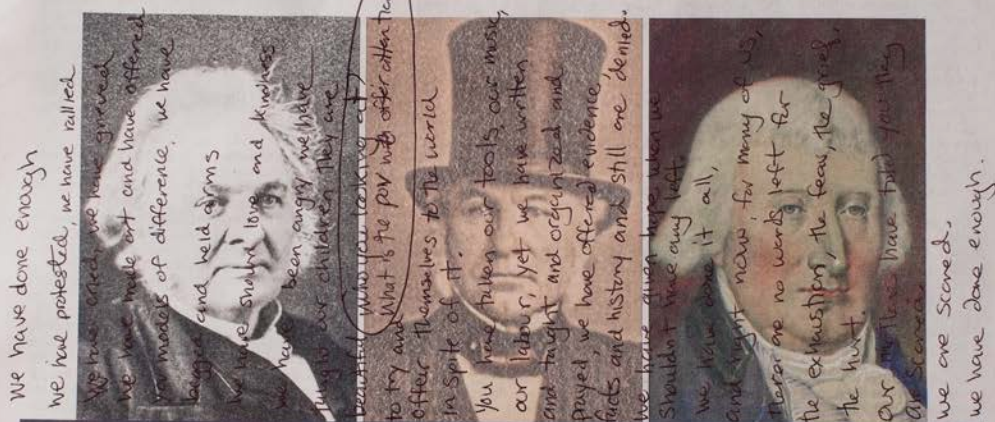 We have done enough
we have protested, we have rallied
We have cried, we have grieved
we have made art and have offered
you models of difference, we have
begged and held arms
we have shown love and kindness
We have been angry, we have
taught our children they are
beautiful (who you looking at?)
What is the pov offer
to try and
offer themselves to the world
in spite of it.
You have taken our tools our music,
our labour, yet we have written
and taught and organized and
prayed, we have offered evidence
facts and history and still are denied.
we have given hope when we
shouldn't have any left.
we have done it all,
and right now, for many of us,
there are no words left for
the exhaustion, the fear, the grief,
the hurt.
Our mothers have told you they
are scared,
we are scared.
we have done enough.